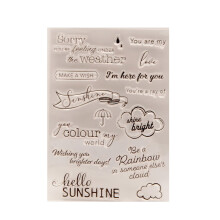 Sorry
you're feeling under
the weather
You are my
love
MAKE A WISH
I'm here for you
Sunshine
You're a ray of
you
colour my
world
shine
bright
Wishing you
brighter days!
Be a
Rainbow
in someone else's
cloud
hello
SUNSHINE